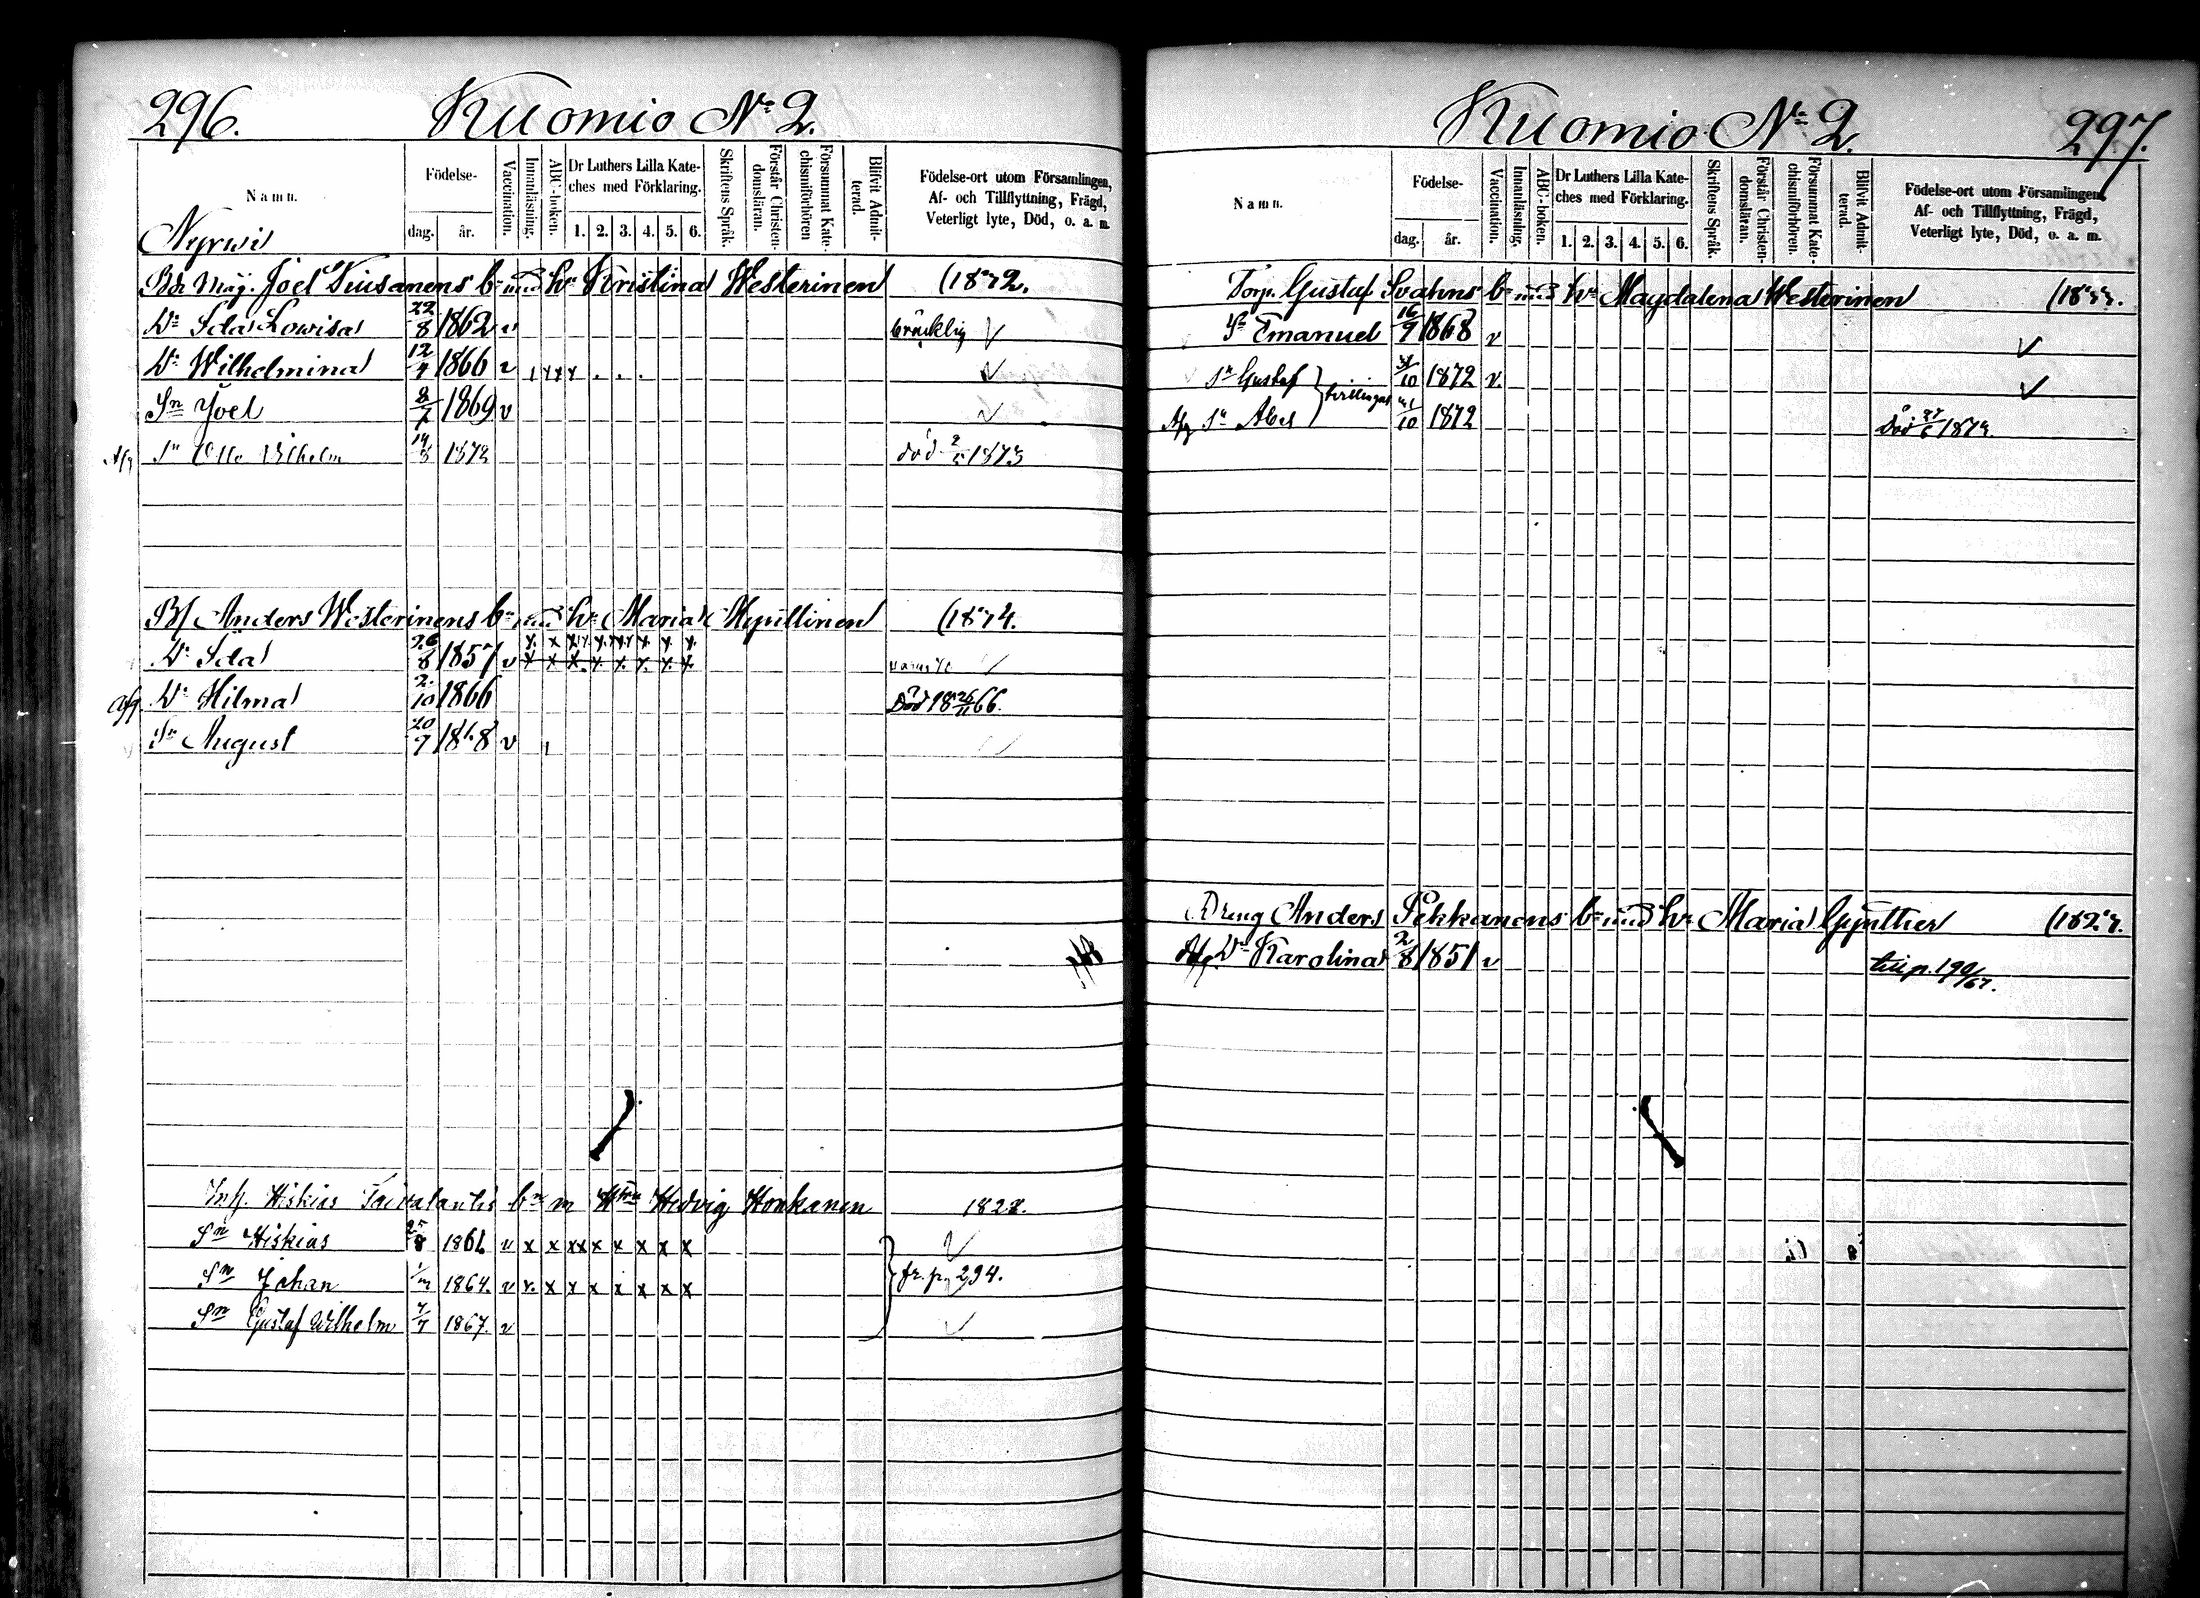 296.
Kuomio No 2.
Namn.
Födelse-
dag.
år.
Vaccination.
Innanläsning.
ABC-boken.
Dr Luthers Lilla Kate-
ches med Förklaring.
1. 2. 3. 4. 5. 6.
Skriftens Språk.
Förstår Christen-
domsläran.
Försummat Kate-
chismiförhören
Blifvit Admit-
terad.
Födelse-ort utom Församlingen,
Af- och Tillflyttning, Frägd,
Veterligt lyte, Död, o. a. m.
Nyrwi
Joel Kiusanens bn med hu Kristina Westerinen
Dr Ida Lowisa 22/8 1862 v bräcklig
Dr Wilhelmina 12/4 1866 v
Sn Joel 1869 v
Afg Sn Otto Vilhelm 1872 död 1873
Anders Westerinens bn med hu Maria (1874.
Dr Ida 26/8 1857 v x x x x x x x x
Afg. Dr Hilma 2/10 1866 Död 18 26/11 66.
Sn August 20/9 1868 v
Inh. Hiskias bn m Hstru Hedvig Honkanen
Sn Hiskias 25/8 v x x xx x x x x x
Sn Johan 1864. v x x x x x x x x
fr. p. 294.
Sn Gustaf Wilhelm 1867. v
Kuomio No 2.
297.
Namn.
Födelse-
dag.
år.
Vaccination.
Innanläsning.
ABC-boken.
Dr Luthers Lilla Kate-
ches med Förklaring.
1. 2. 3. 4. 5. 6.
Skriftens Språk.
Förstår Christen-
domsläran.
Försummat Kate-
chismiförhören.
Blifvit Admit-
terad.
Födelse-ort utom Församlingen,
Af- och Tillflyttning, Frägd,
Veterligt lyte, Död, o. a. m.
Torp. Gustaf Svahns bn med hu Magdalena Westerinen
Sn Emanuel 16/9 1868 v
Sn Gustaf 1872 v.
tvillingar
Afg Sn Abel 1872 Död
Dreng Anders Pekkanens bn med hu Maria Gynther
Afg. Dr Karolina 2/8 1851 v till p. 199/67.